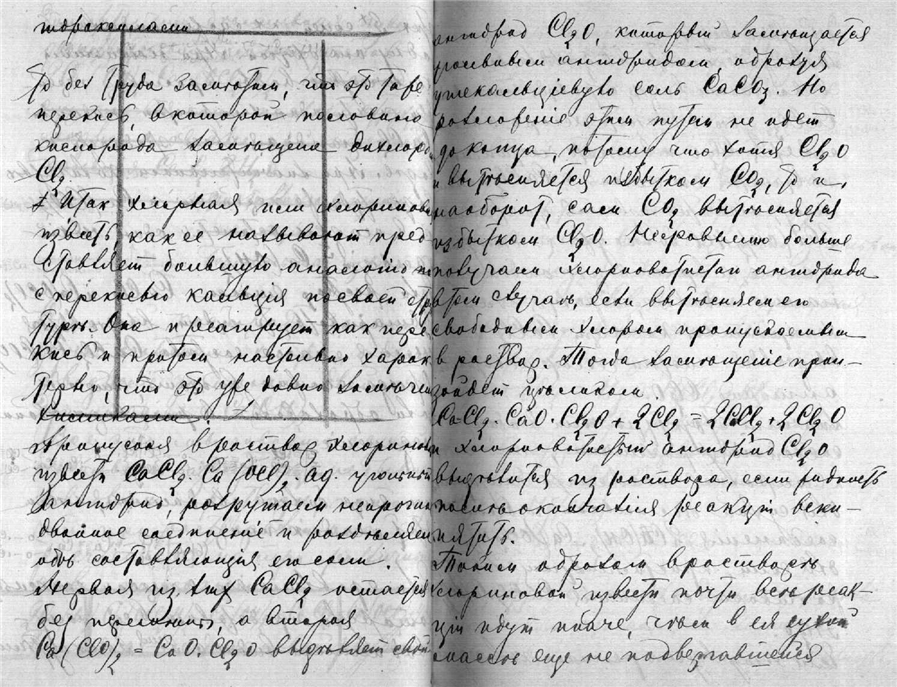 гидрокси
То без труда заметит, что это тоже
перекись, в которой половина
кислорода замещена дихлоро
Cl₂
Итак хлорная или хлоринова
известь, как ее называют пред
ставляет большую аналогию
с перекисью кальция по своей струк
туре. Она и реагирует как пере
кись и притом настолько харак
терно, что это уже давно замечено
химиками.
Пропуская в раствор хлориновой
извести CaCl₂·Ca(OCl)₂·aq. угольный
ангидрид, разрушаем непрочное
двойное соединение и разъединяем
обе составляющия его соли.
Первая из них CaCl₂ остается
без перемены, а вторая
Ca(ClO)₂ = CaO·Cl₂O выделяет свой
ангидрид Cl₂O, который замещается
угольным ангидридом образуя
углекальциевую соль CaCO₃. Но
разложение этим путем не идет
до конца, потому что хотя Cl₂O
и вытесняется избытком CO₂, то и,
наоборот, сам CO₂ вытесняется
избытком Cl₂O. Несравненно больше
получаем хлорноватистого ангидрида
в том случае, если вытесняем его
свободным хлором пропускаемым
в раствор. Тогда замещение прои-
зойдет целиком.
CaCl₂·CaO·Cl₂O + 2Cl₂ = 2CaCl₂ + 2Cl₂O
и хлорноватистый ангидрид Cl₂O
выделится из раствора, если жидкость
после окончания реакции вски-
пятить.
Таким образом в растворе
хлориновой извести почти все реак-
ции идут иначе, чем в ея сухой
массе еще не подвергавшейся